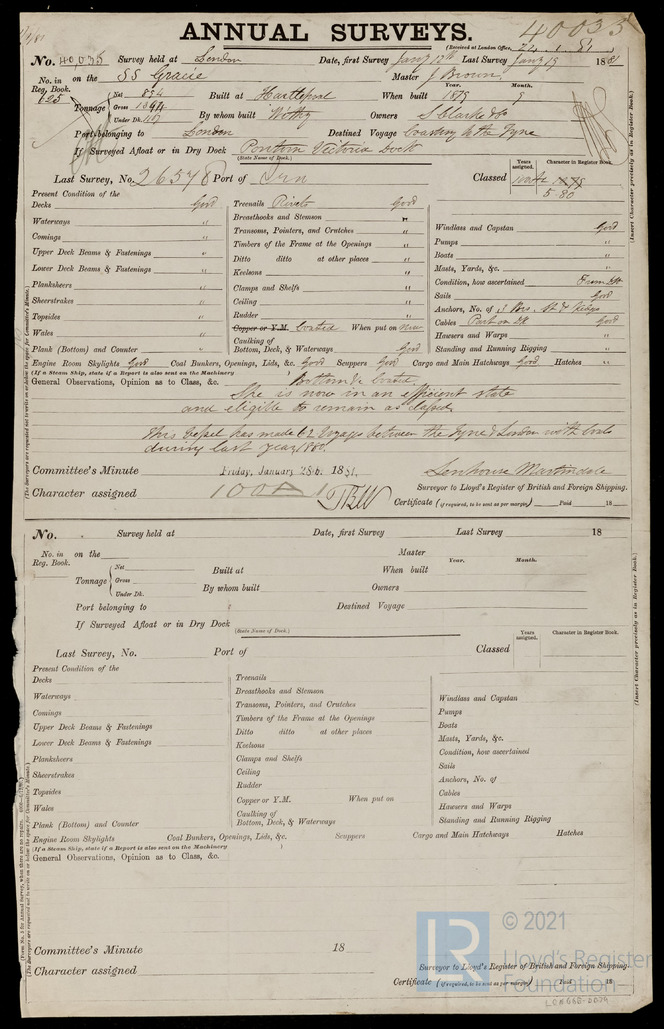 ANNUAL SURVEYS.
40035
(Received at London Office, 24. 1. 81
No. 40,035 Survey held at London Date, first Survey Jany 17th Last Survey Jany 19 1881
No. in Reg. Book. on the SS Gracie Master J Brown
625 Tonnage Net 894 Built at Hartlepool When built Year. 1879 Month. 9
Gross 1394
Under Dk. 1117 By whom built Withy Owners S Clarke & Co
Port belonging to London Destined Voyage Coasting to the Tyne
If Surveyed Afloat or in Dry Dock Pontoon Victoria Dock
(State Name of Dock.)
Last Survey, No. 26578 Port of Irn Classed
Years assigned. Character in Register Book.
5.80
(Insert Character precisely as in Register Book.)
Present Condition of the
Decks Good
Waterways "
Comings "
Upper Deck Beams & Fastenings "
Lower Deck Beams & Fastenings "
Planksheers "
Sheerstrakes "
Topsides "
Wales "
Plank (Bottom) and Counter "
Treenails Rivets Good
Breasthooks and Stemson "
Transoms, Pointers, and Crutches "
Timbers of the Frame at the Openings "
Ditto ditto at other places "
Keelsons "
Clamps and Shelfs "
Ceiling "
Rudder "
Copper or Y.M. Coated When put on New
Caulking of Bottom, Deck, & Waterways Good
Windlass and Capstan Good
Pumps "
Boats "
Masts, Yards, &c. "
Condition, how ascertained From Dk
Sails Good
Anchors, No. of 3 Brs. St & Kedges
Cables Part on Dk Good
Hawsers and Warps "
Standing and Running Rigging "
Engine Room Skylights Good Coal Bunkers, Openings, Lids, &c. Good Scuppers Good Cargo and Main Hatchways Good Hatches "
(If a Steam Ship, state if a Report is also sent on the Machinery )
General Observations, Opinion as to Class, &c. Bottom &c Coated
She is now in an efficient state
and eligible to remain as classed
This Vessel has made 62 Voyages between the Tyne & London with Coals
during last year 1880.
Committee's Minute Friday, January 28th. 1881.
Lenhouse Martindale
Character assigned 100A1
Surveyor to Lloyd's Register of British and Foreign Shipping.
Certificate (if required, to be sent as per margin) Paid 18
No. Survey held at Date, first Survey Last Survey 18
No. in Reg. Book. on the Master
Tonnage Net Built at When built Year. Month.
Gross
Under Dk. By whom built Owners
Port belonging to Destined Voyage
If Surveyed Afloat or in Dry Dock
(State Name of Dock.)
Last Survey, No. Port of Classed
Years assigned. Character in Register Book.
(Insert Character precisely as in Register Book.)
Present Condition of the
Decks
Waterways
Comings
Upper Deck Beams & Fastenings
Lower Deck Beams & Fastenings
Planksheers
Sheerstrakes
Topsides
Wales
Plank (Bottom) and Counter
Treenails
Breasthooks and Stemson
Transoms, Pointers, and Crutches
Timbers of the Frame at the Openings
Ditto ditto at other places
Keelsons
Clamps and Shelfs
Ceiling
Rudder
Copper or Y.M. When put on
Caulking of Bottom, Deck, & Waterways
Windlass and Capstan
Pumps
Boats
Masts, Yards, &c.
Condition, how ascertained
Sails
Anchors, No. of
Cables
Hawsers and Warps
Standing and Running Rigging
Engine Room Skylights Coal Bunkers, Openings, Lids, &c. Scuppers Cargo and Main Hatchways Hatches
(If a Steam Ship, state if a Report is also sent on the Machinery )
General Observations, Opinion as to Class, &c.
LR © 2021
Lloyd's Register
Foundation
Committee's Minute 18
Character assigned
Surveyor to Lloyd's Register of British and Foreign Shipping.
Certificate (if required, to be sent as per margin) Paid 18
LON682-0079